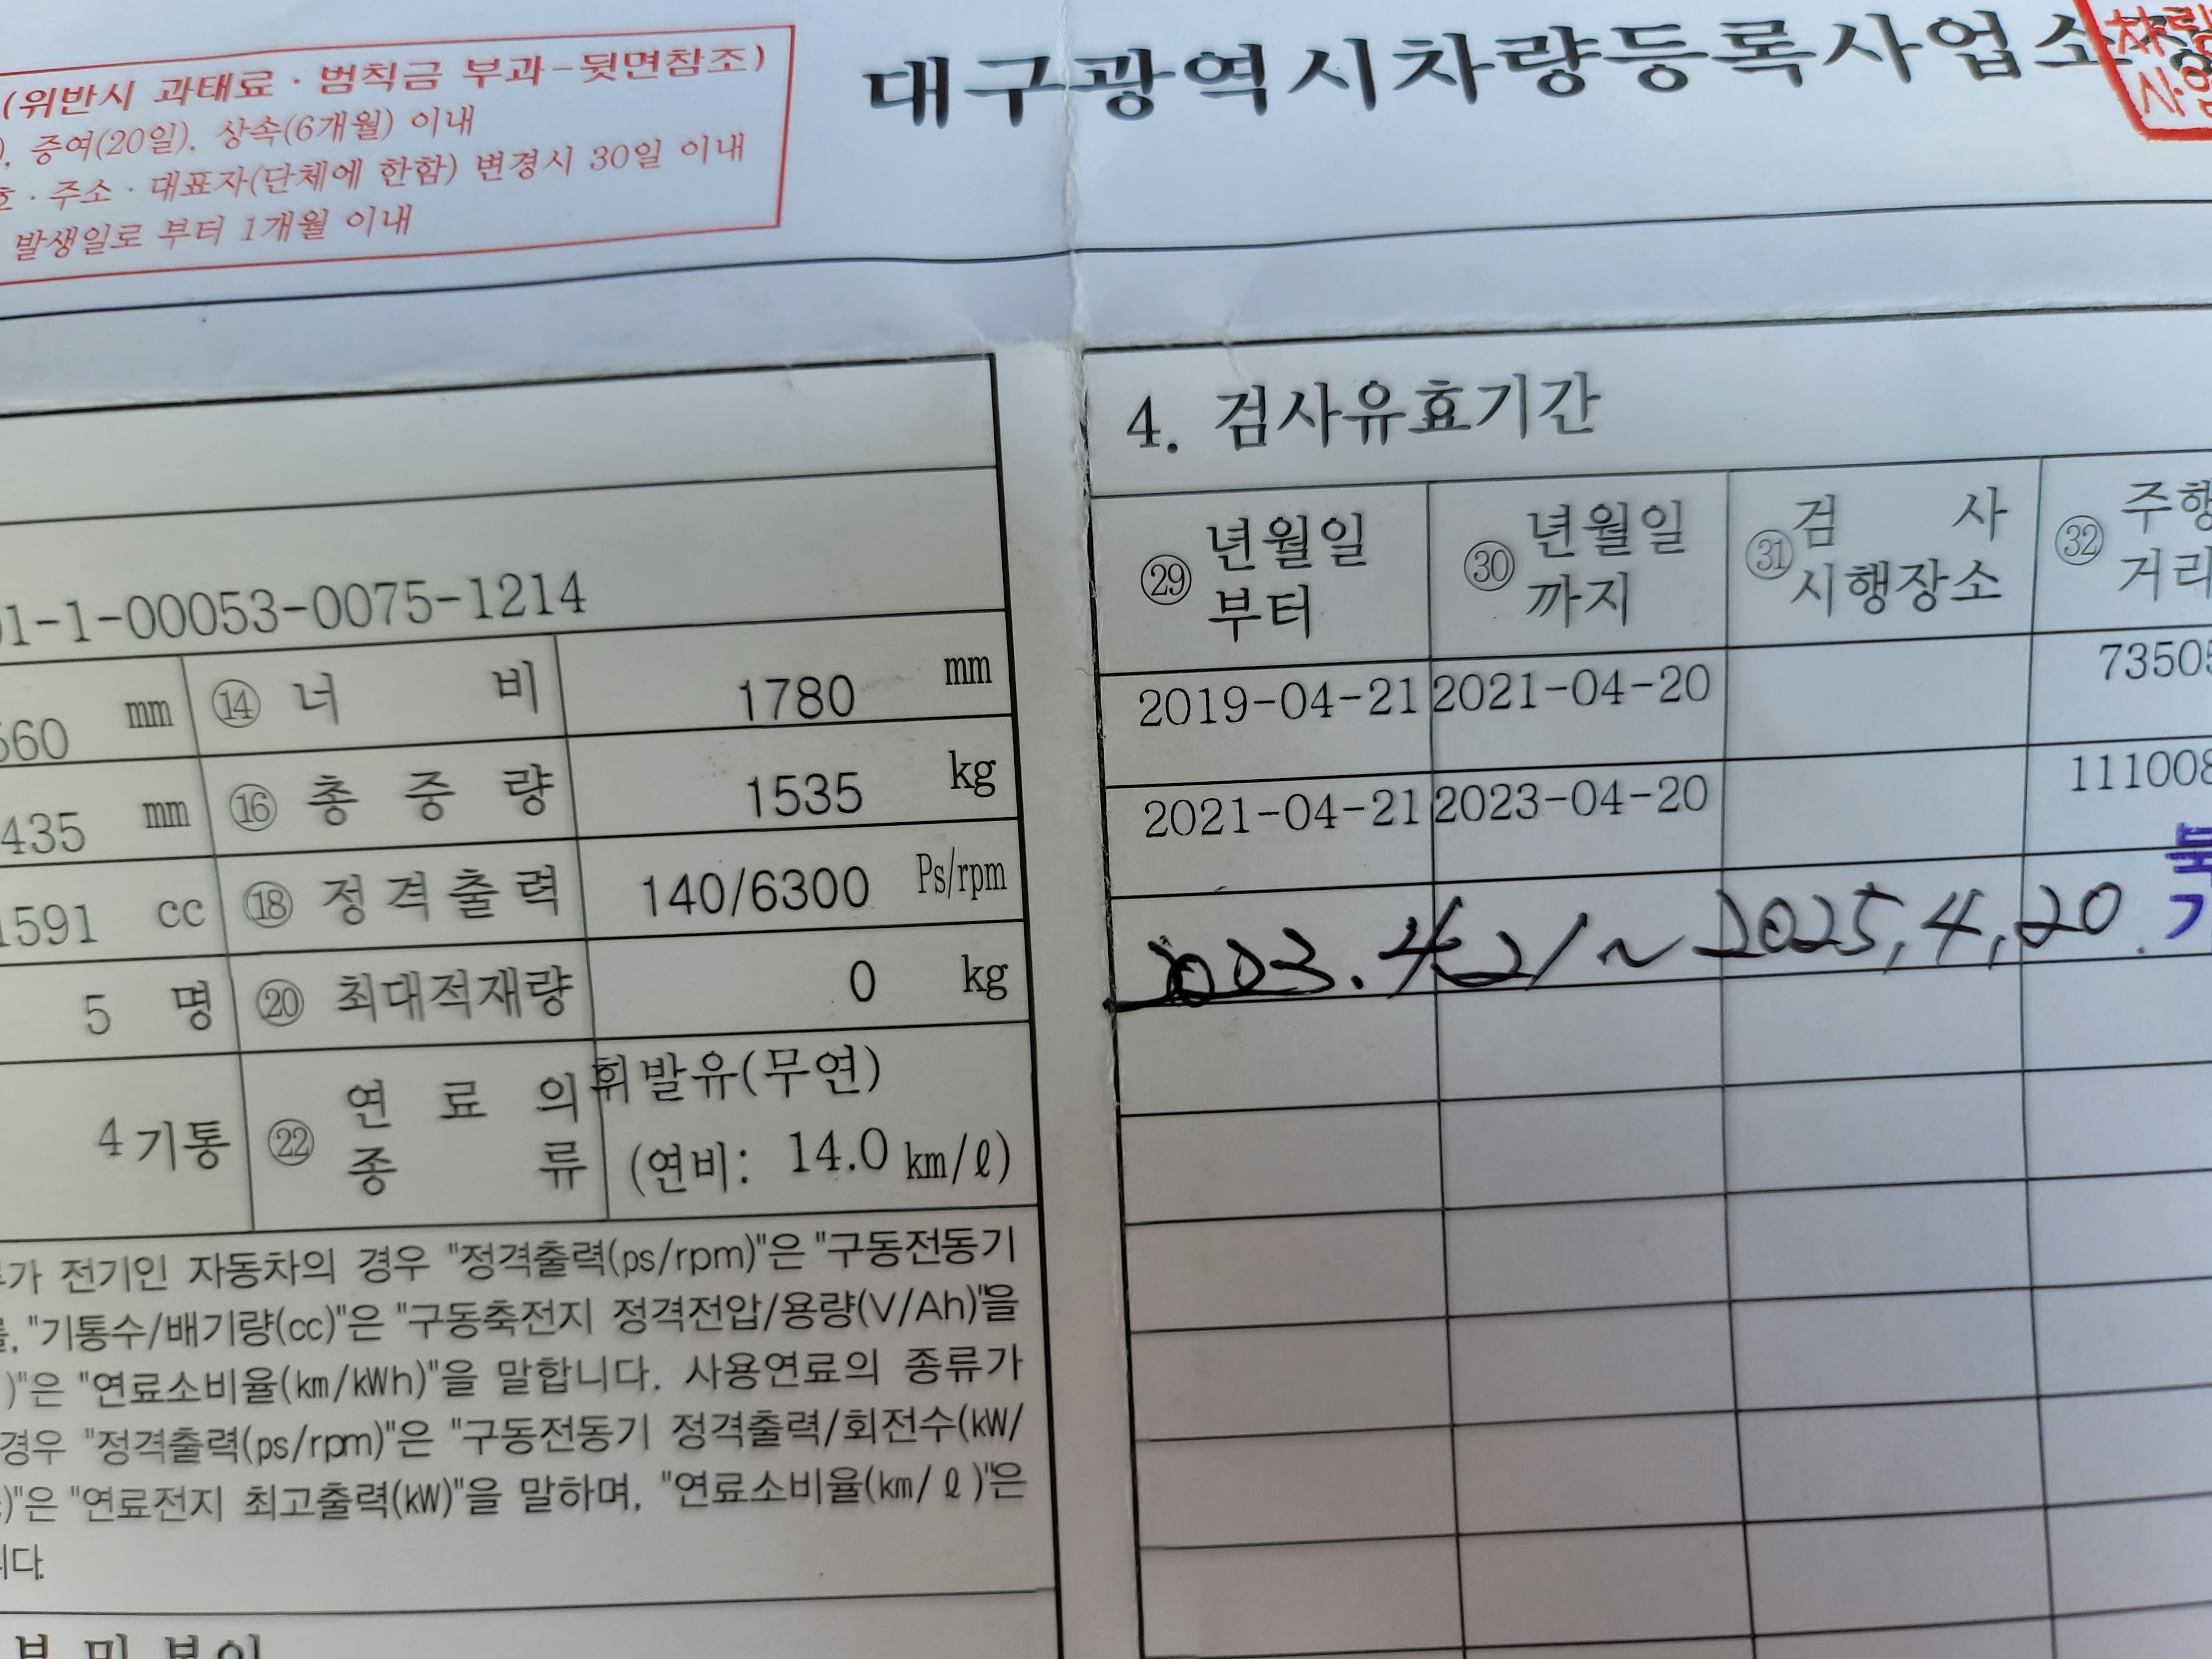 (위반시 과태료 · 범칙금 부과-뒷면참조)
, 증여(20일), 상속(6개월) 이내
· 주소 · 대표자(단체에 한함) 변경시 30일 이내
발생일로 부터 1개월 이내
대구광역시차량등록사업소
1-1-00053-0075-1214
560 mm ⑭ 너 비 1780 mm
435 mm ⑯ 총 중 량 1535 kg
1591 cc ⑱ 정격출력 140/6300 Ps/rpm
5 명 ⑳ 최대적재량 0 kg
4 기통 ㉒ 연 료 의 종 류 휘발유(무연)
(연비: 14.0 km/ℓ)
가 전기인 자동차의 경우 "정격출력(ps/rpm)"은 "구동전동기
, "기통수/배기량(cc)"은 "구동축전지 정격전압/용량(V/Ah)"을
)"은 "연료소비율(km/kWh)"을 말합니다. 사용연료의 종류가
경우 "정격출력(ps/rpm)"은 "구동전동기 정격출력/회전수(kW/
)"은 "연료전지 최고출력(kW)"을 말하며, "연료소비율(km/ℓ)"은
니다.
4. 검사유효기간
㉙ 년월일 부터 ㉚ 년월일 까지 ㉛ 검 사 시행장소 ㉜ 주행 거리
2019-04-21 2021-04-20 73505
2021-04-21 2023-04-20 111008
2023.4.21 ~ 2025,4,20.